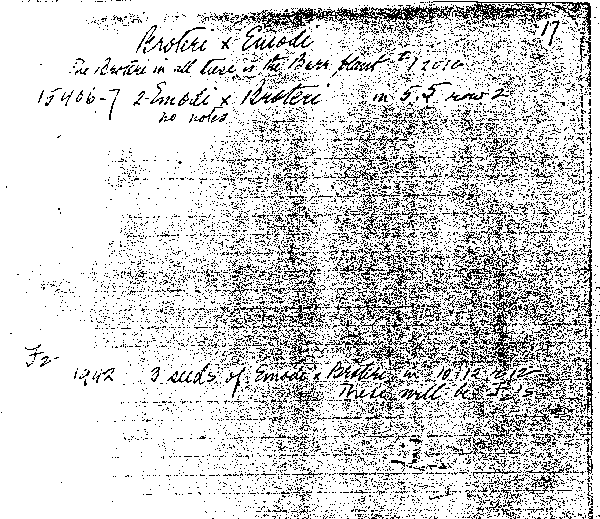 17
Broteri x Emodi
The Broteri in all these is the Barr plant # 12010
15406-7 2-Emodi x Broteri in 5.5 row 2
no notes
F2
1942 3 seeds of Emodi x Broteri in 10/12
These will be F2's